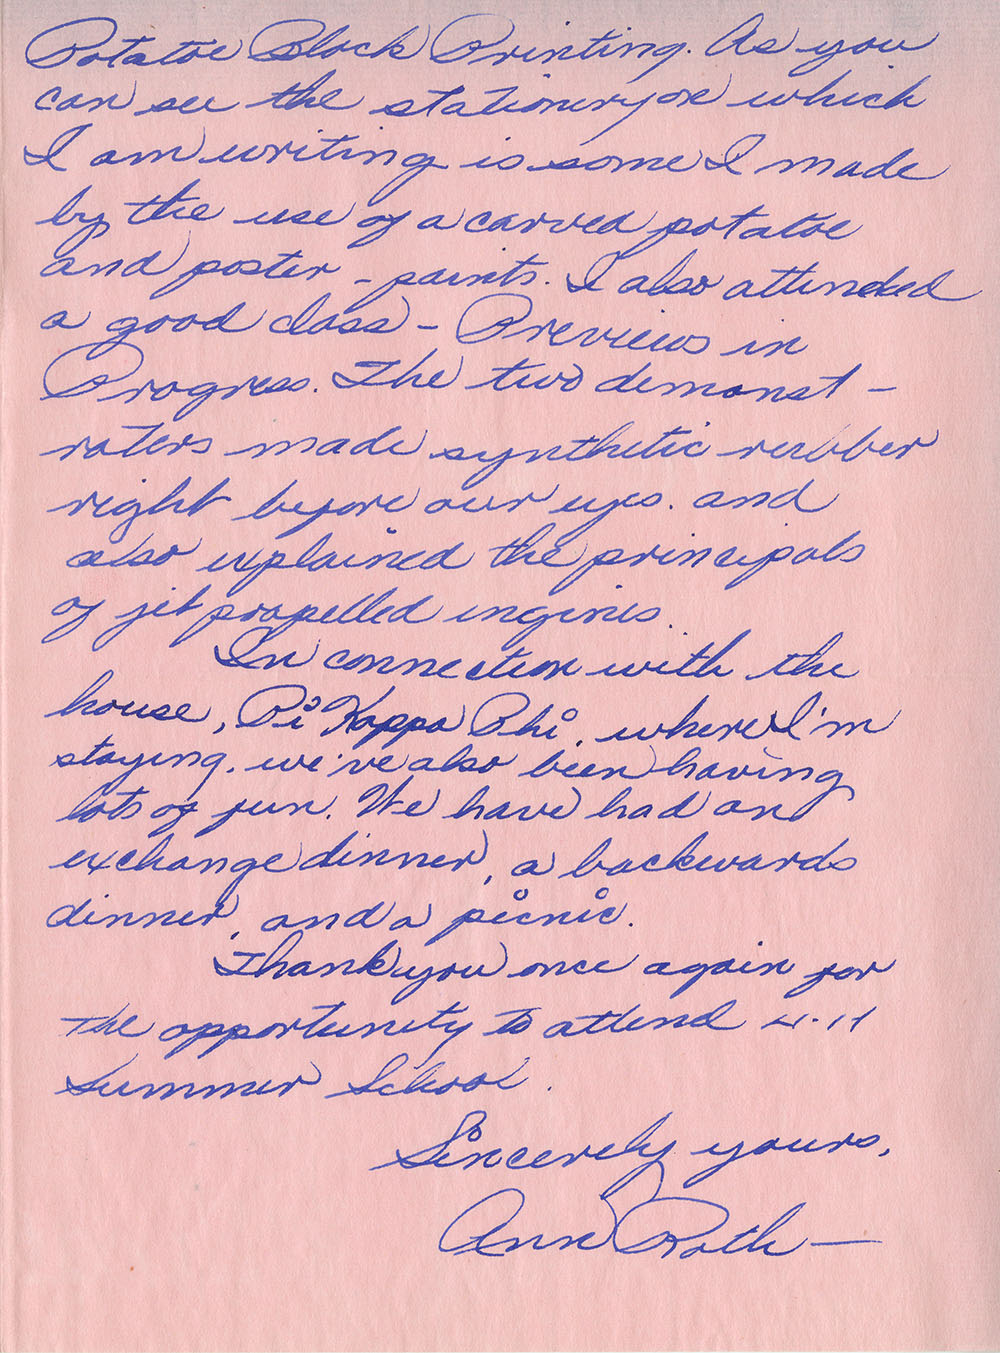 Potatoe Block Printing. As you
can see the stationery on which
I am writing is some I made
by the use of a carved potatoe
and poster-paints. I also attended
a good class - Previews in
Progress. The two demonst-
raters made synthetic rubber
right before our eyes. and
also explained the principals
of jet propelled engines.
In connection with the
house, Pi Kappa Phi, where I'm
staying, we've also been having
lots of fun. We have had an
exchange dinner, a backwards
dinner, and a picnic.
Thank you once again for
the opportunity to attend 4-H
Summer School.
Sincerely yours,
Ann Roth—